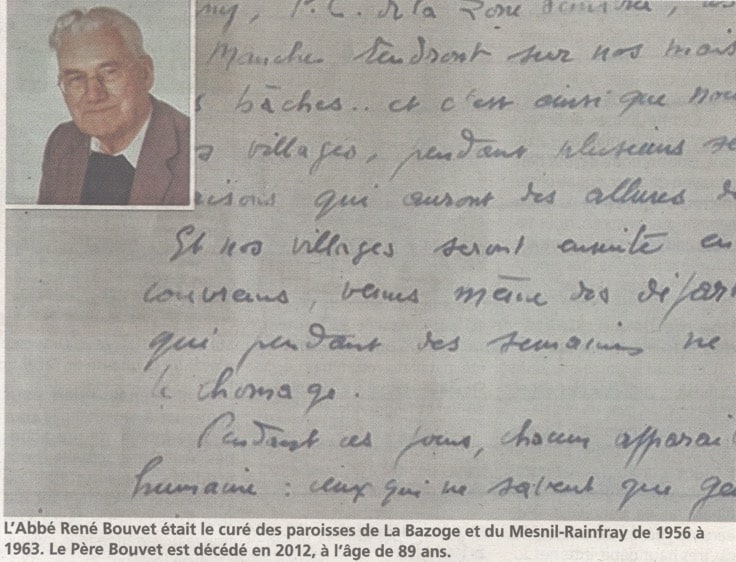 P.C. de la Zone
Manche tendront sur nos mais
bâches.. et c'est ainsi que nou
villages, pendant plusieurs se
isons qui auront des allures d
Et nos villages seront ensuite en
couvreurs, venus même des dépar
qui pendant des semaines ne
le chomage.
Pendant ces jours, chacun apparai
humaine : ceux qui ne savent que ge
L'Abbé René Bouvet était le curé des paroisses de La Bazoge et du Mesnil-Rainfray de 1956 à
1963. Le Père Bouvet est décédé en 2012, à l'âge de 89 ans.